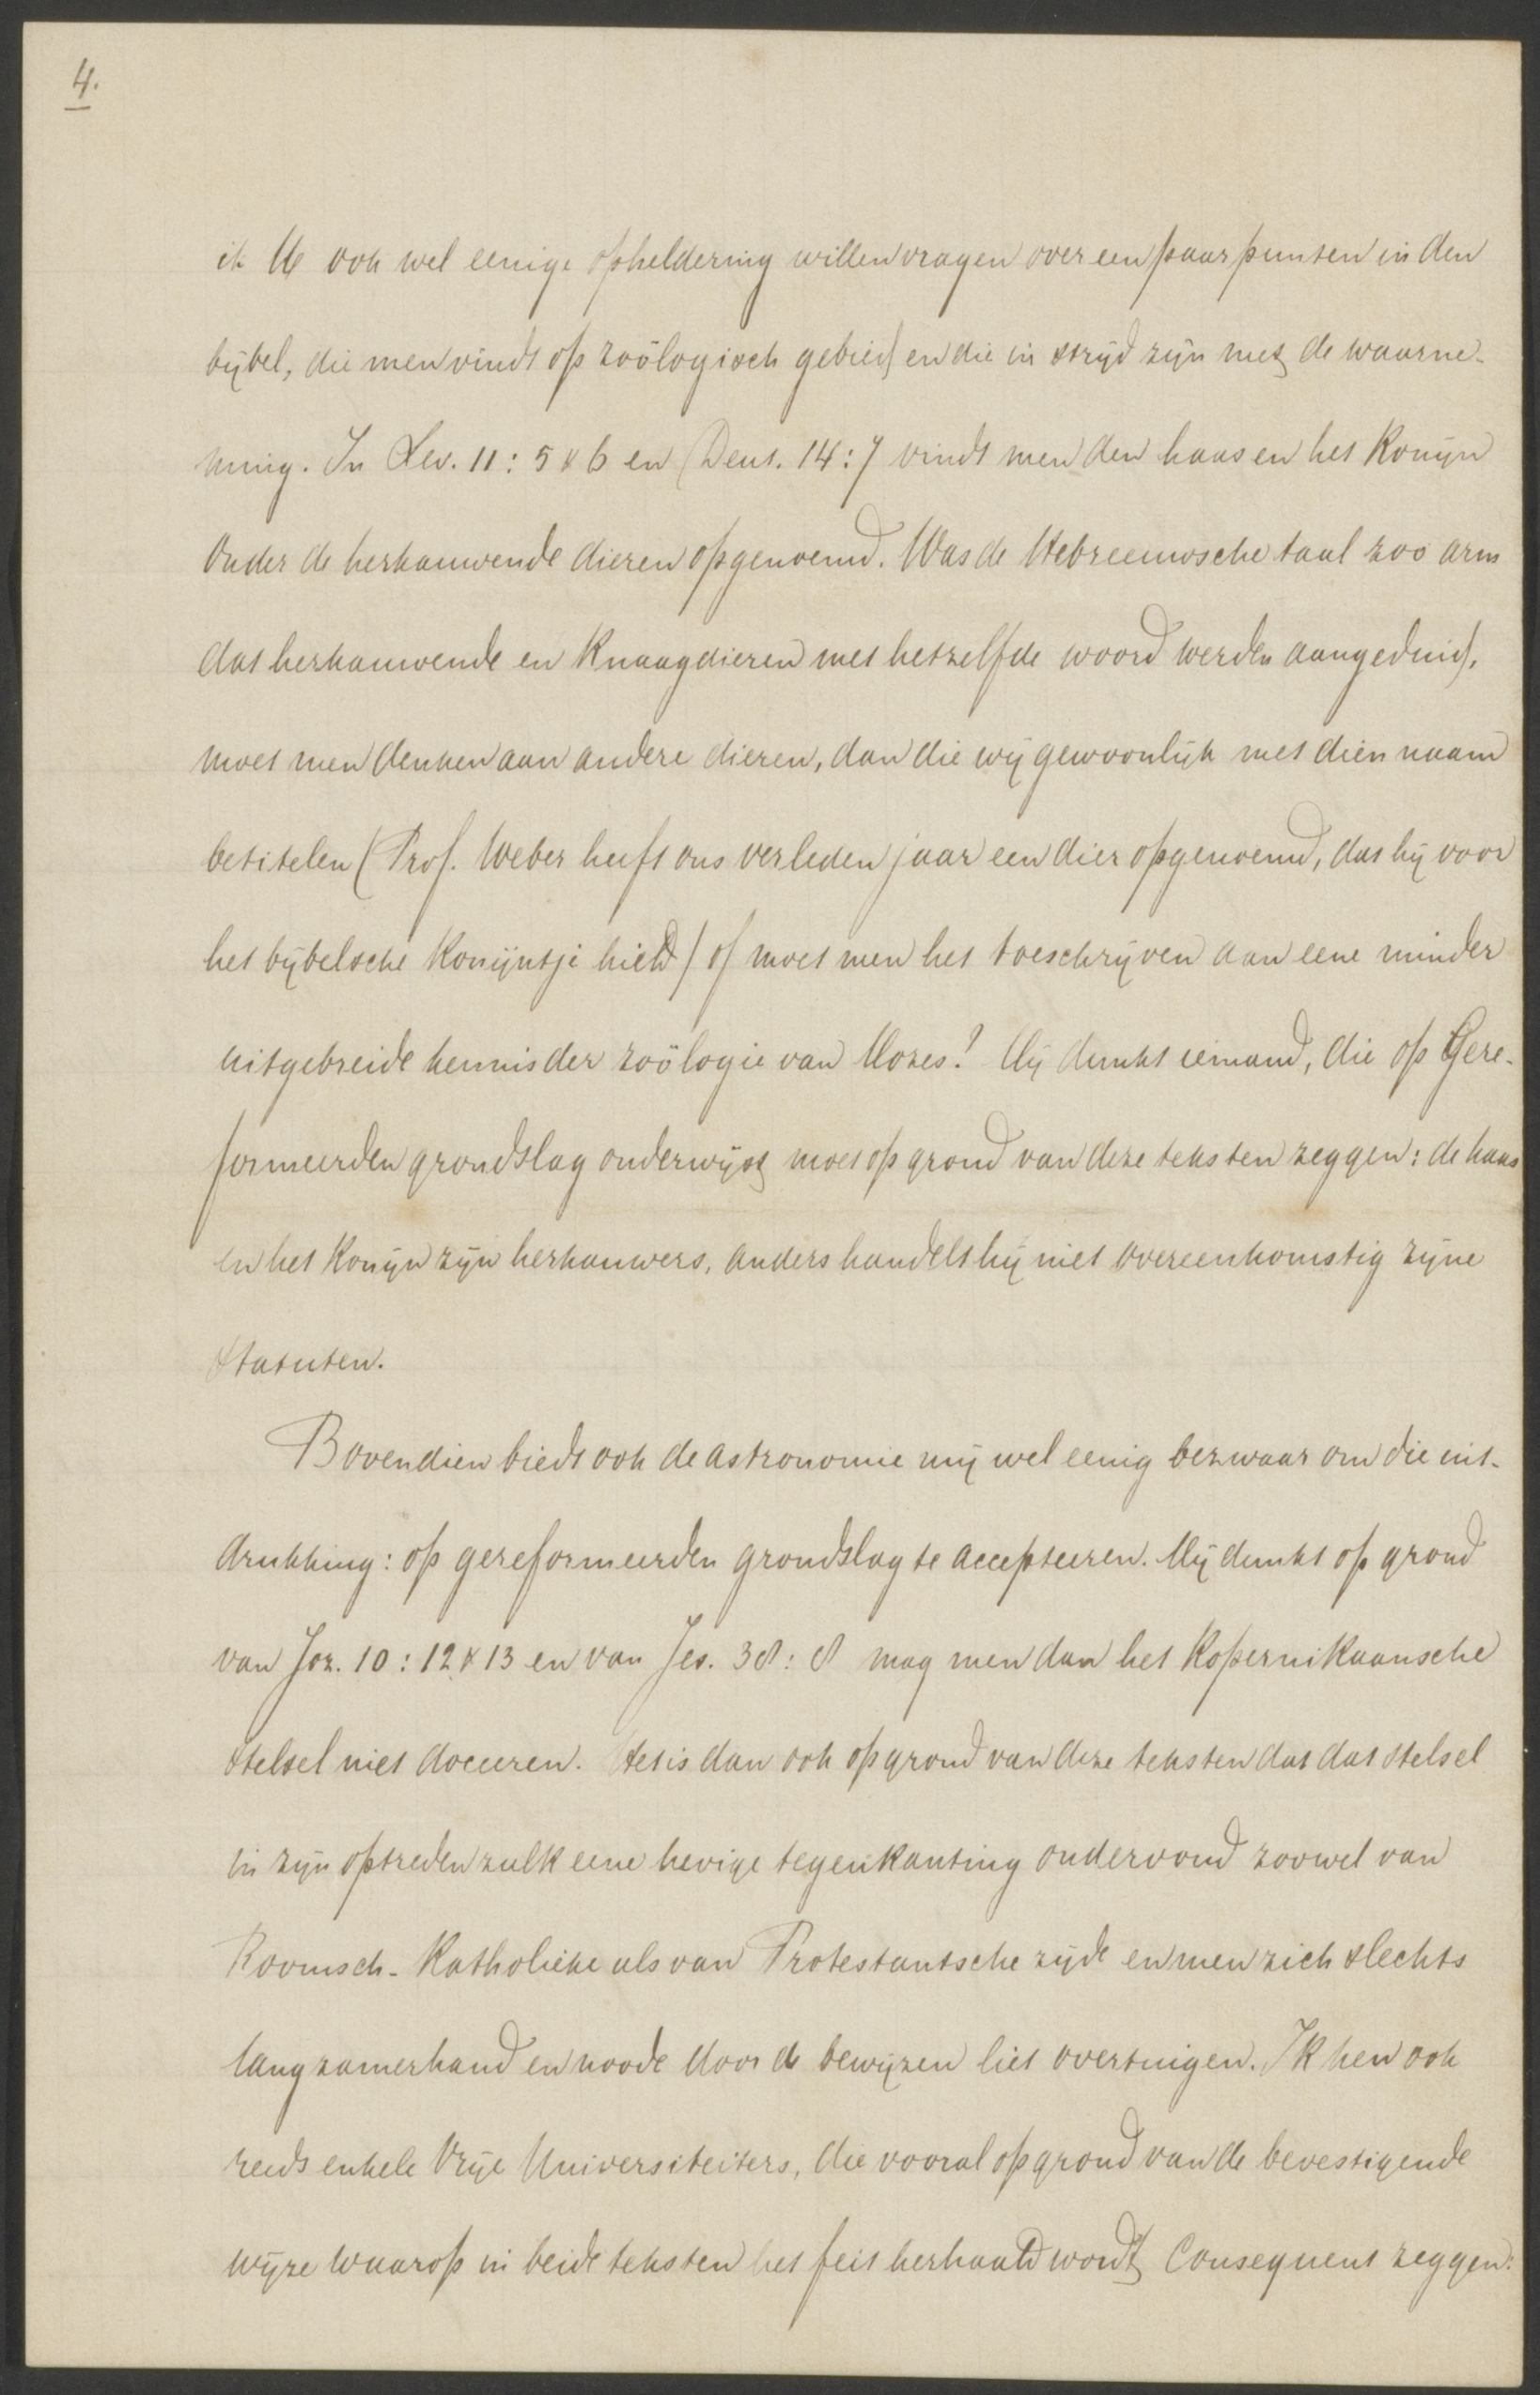 4.
ik U ook wel eenige opheldering willen vragen over een paar punten in den
bijbel, die men vindt op zoölogisch gebied en die in strijd zijn met de waarne-
ming. In Lev. 11 : 5 & 6 en Deut. 14 : 7 vindt men den haas en het konijn
onder de herkauwende dieren opgenoemd. Was de Hebreeuwsche taal zoo arm
dat herkauwende en knaagdieren met hetzelfde woord werden aangeduid,
moet men denken aan andere dieren, dan die wij gewoonlijk met dien naam
betitelen (Prof. Weber heeft ons verleden jaar een dier opgenoemd, dat hij voor
het bijbelsche konijntje hield) of moet men het toeschrijven aan eene minder
uitgebreide kennis der zoölogie van Mozes? Mij dunkt iemand, die op Gere-
formeerden grondslag onderwijst moet op grond van deze teksten zeggen: de haas
en het konijn zijn herkauwers, anders handelt hij niet overeenkomstig zijne
statuten.
Bovendien biedt ook de astronomie mij wel eenig bezwaar om die uit-
drukking: op gereformeerden grondslag te accepteeren. Mij dunkt op grond
van Joz. 10 : 12 & 13 en van Jes. 38 : 8 mag men dan het Kopernikaansche
stelsel niet doceeren. Het is dan ook op grond van deze teksten dat dat stelsel
in zijn optreden zulk eene hevige tegenkanting ondervond zoowel van
Roomsch-Katholieke als van Protestantsche zijde en men zich slechts
langzamerhand en noode door de bewijzen liet overtuigen. Ik ken ook
reeds enkele Vrije Universiteiters, die vooral op grond van de bevestigende
wijze waarop in beide teksten het feit herhaald wordt consequent zeggen: